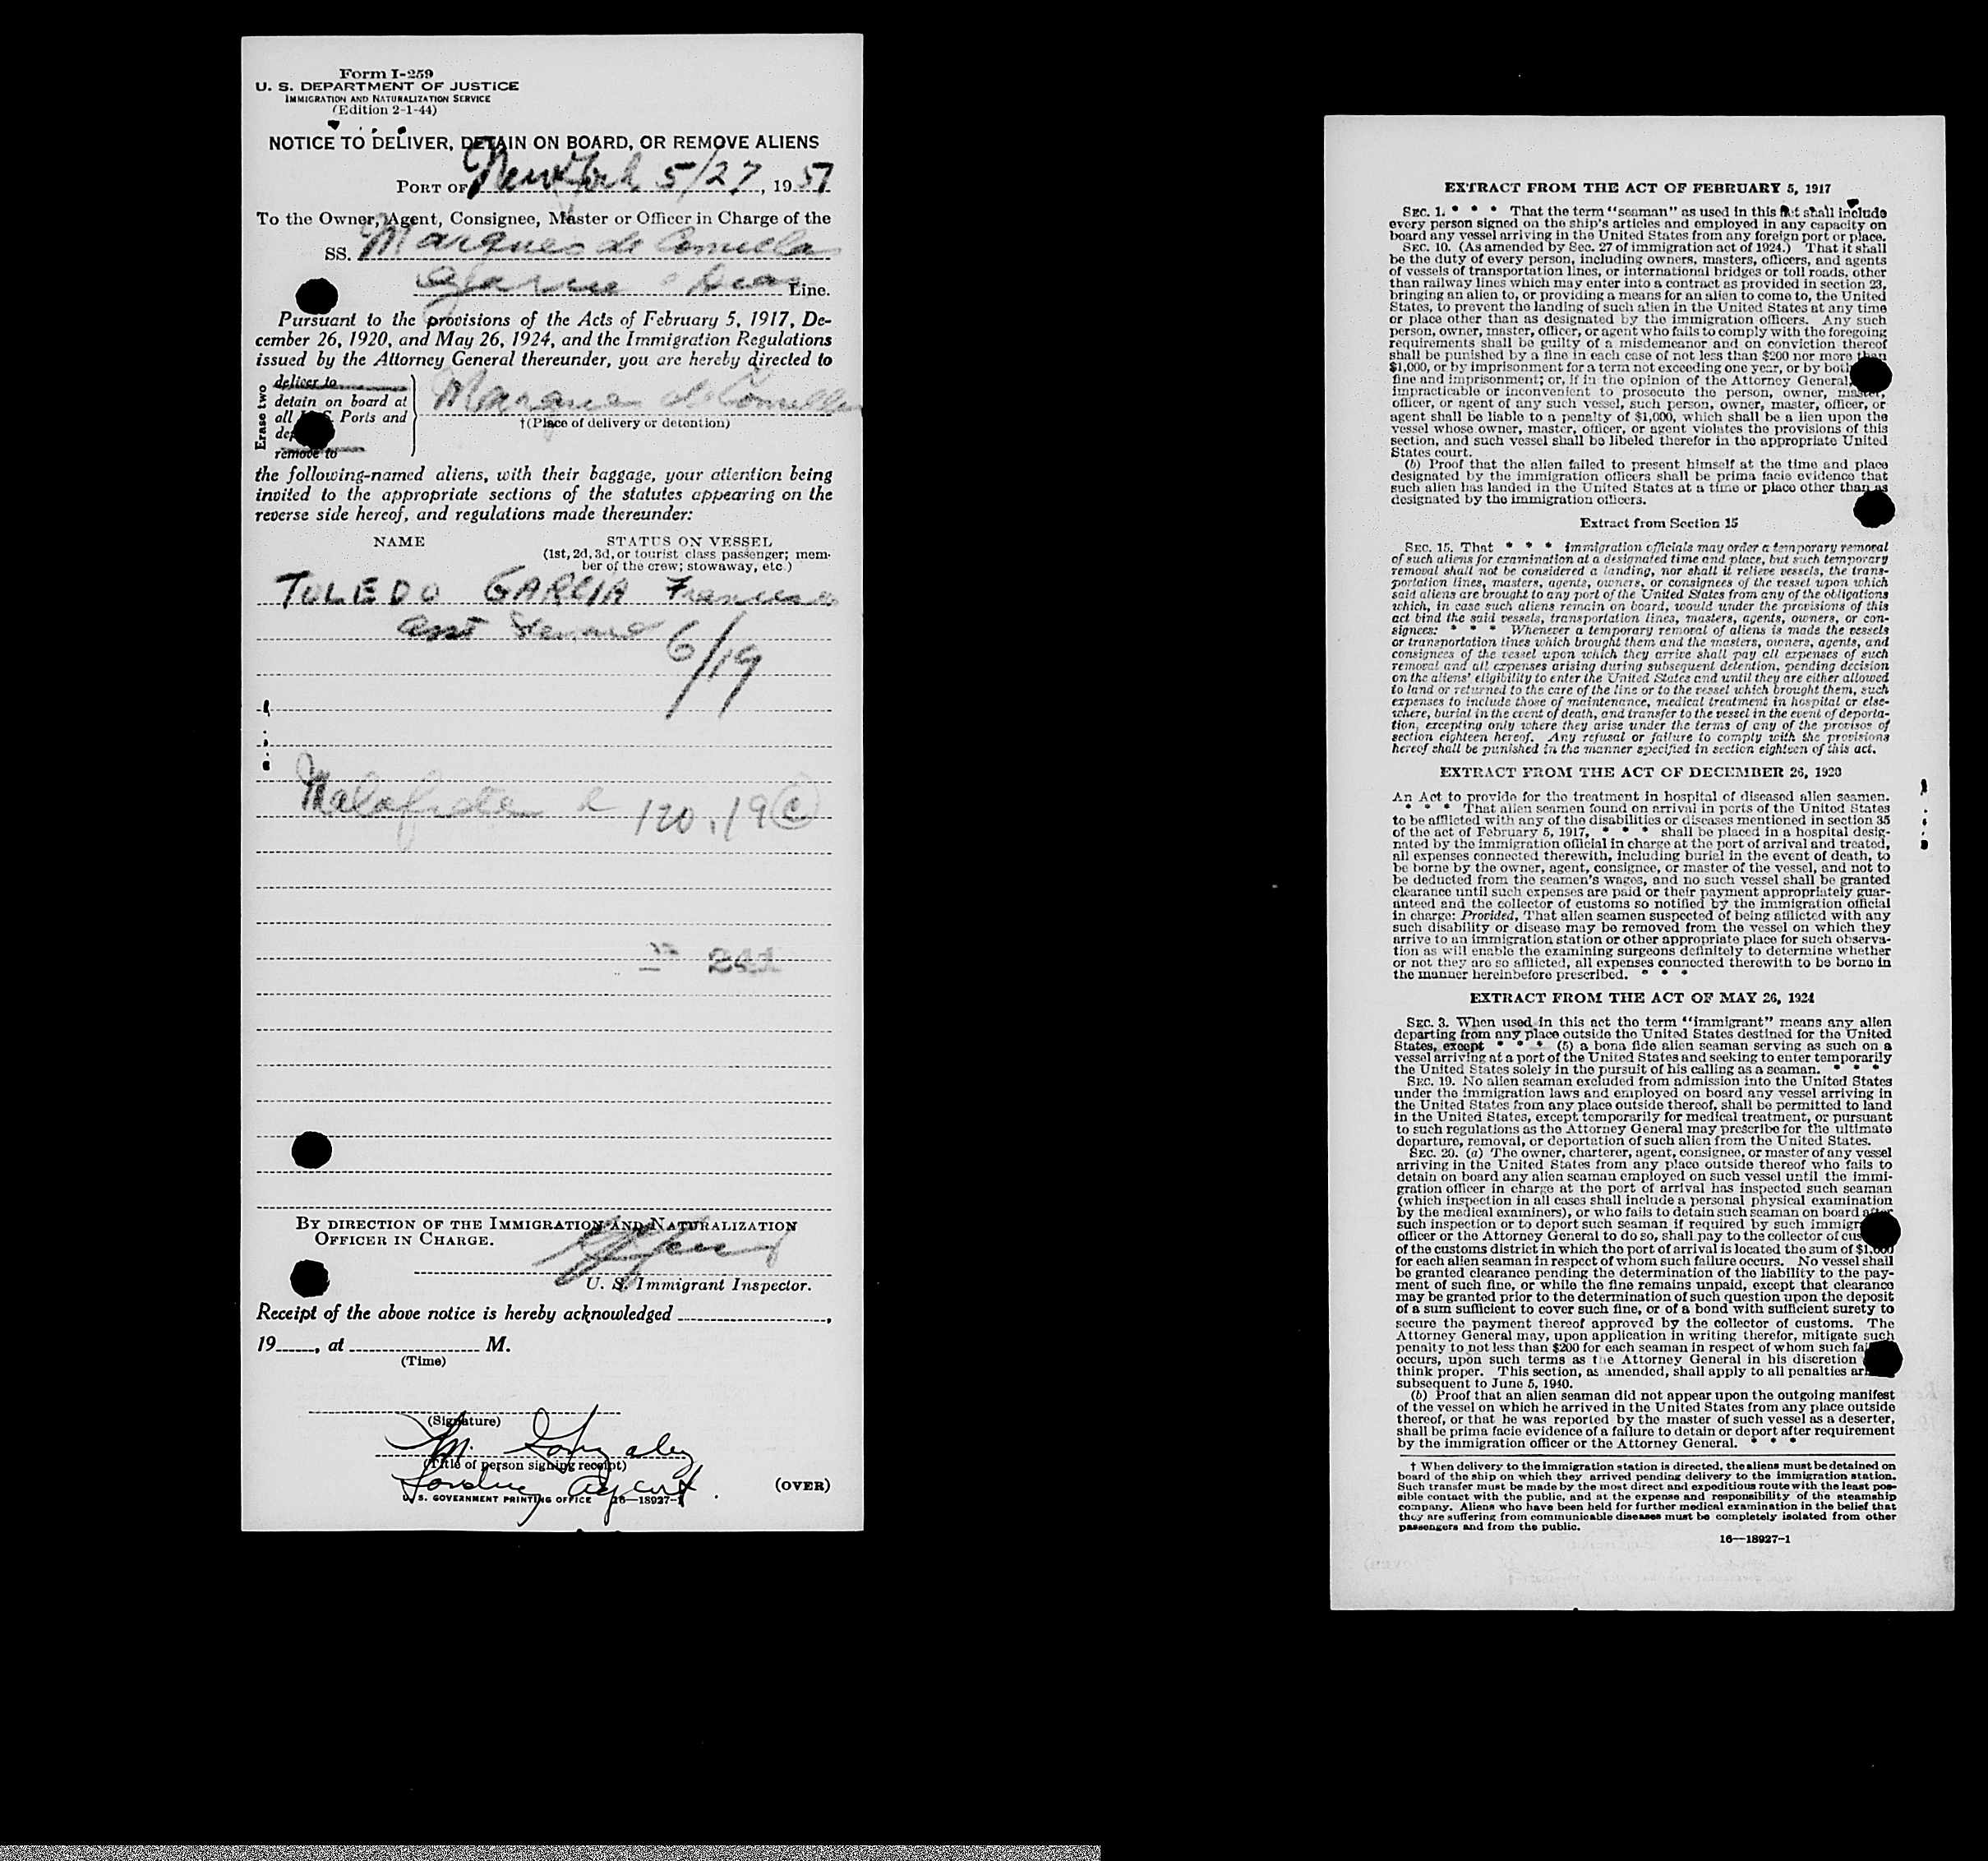 Form I-259
U. S. DEPARTMENT OF JUSTICE
IMMIGRATION AND NATURALIZATION SERVICE
(Edition 2-1-44)
NOTICE TO DELIVER, DETAIN ON BOARD, OR REMOVE ALIENS
PORT OF New York 5/27, 1951
To the Owner, Agent, Consignee, Master or Officer in Charge of the
SS. Marques de Comillas
Garcia Diaz Line.
Pursuant to the provisions of the Acts of February 5, 1917, De-
cember 26, 1920, and May 26, 1924, and the Immigration Regulations
issued by the Attorney General thereunder, you are hereby directed to
Erase two
deliver to
detain on board at
all Ports and
remove to
Marques de Comillas
†(Place of delivery or detention)
the following-named aliens, with their baggage, your attention being
invited to the appropriate sections of the statutes appearing on the
reverse side hereof, and regulations made thereunder:
NAME
STATUS ON VESSEL
(1st, 2d, 3d, or tourist class passenger; mem-
ber of the crew; stowaway, etc.)
TOLEDO GARCIA Francisco
asst Steward 6/19
Malafide 120.19 (c)
241
BY DIRECTION OF THE IMMIGRATION AND NATURALIZATION
OFFICER IN CHARGE.
U. S. Immigrant Inspector.
Receipt of the above notice is hereby acknowledged ,
19 , at M.
(Time)
(Signature)
M. Gonzalez
(Title of person signing receipt)
Agent
(OVER)
U. S. GOVERNMENT PRINTING OFFICE 16—18927-1
EXTRACT FROM THE ACT OF FEBRUARY 5, 1917
SEC. 1. * * * That the term "seaman" as used in this Act shall include
every person signed on the ship's articles and employed in any capacity on
board any vessel arriving in the United States from any foreign port or place.
SEC. 10. (As amended by Sec. 27 of immigration act of 1924.) That it shall
be the duty of every person, including owners, masters, officers, and agents
of vessels of transportation lines, or international bridges or toll roads, other
than railway lines which may enter into a contract as provided in section 23,
bringing an alien to, or providing a means for an alien to come to, the United
States, to prevent the landing of such alien in the United States at any time
or place other than as designated by the immigration officers. Any such
person, owner, master, officer, or agent who fails to comply with the foregoing
requirements shall be guilty of a misdemeanor and on conviction thereof
shall be punished by a fine in each case of not less than $200 nor more than
$1,000, or by imprisonment for a term not exceeding one year, or by both
fine and imprisonment; or, if in the opinion of the Attorney General,
impracticable or inconvenient to prosecute the person, owner, master,
officer, or agent of any such vessel, such person, owner, master, officer, or
agent shall be liable to a penalty of $1,000, which shall be a lien upon the
vessel whose owner, master, officer, or agent violates the provisions of this
section, and such vessel shall be libeled therefor in the appropriate United
States court.
(b) Proof that the alien failed to present himself at the time and place
designated by the immigration officers shall be prima facie evidence that
such alien has landed in the United States at a time or place other than as
designated by the immigration officers.
Extract from Section 15
SEC. 15. That * * * immigration officials may order a temporary removal
of such aliens for examination at a designated time and place, but such temporary
removal shall not be considered a landing, nor shall it relieve vessels, the trans-
portation lines, masters, agents, owners, or consignees of the vessel upon which
said aliens are brought to any port of the United States from any of the obligations
which, in case such aliens remain on board, would under the provisions of this
act bind the said vessels, transportation lines, masters, agents, owners, or con-
signees: * * * Whenever a temporary removal of aliens is made the vessels
or transportation lines which brought them and the masters, owners, agents, and
consignees of the vessel upon which they arrive shall pay all expenses of such
removal and all expenses arising during subsequent detention, pending decision
on the aliens' eligibility to enter the United States and until they are either allowed
to land or returned to the care of the line or to the vessel which brought them, such
expenses to include those of maintenance, medical treatment in hospital or else-
where, burial in the event of death, and transfer to the vessel in the event of deporta-
tion, excepting only where they arise under the terms of any of the provisos of
section eighteen hereof. Any refusal or failure to comply with the provisions
hereof shall be punished in the manner specified in section eighteen of this act.
EXTRACT FROM THE ACT OF DECEMBER 26, 1920
An Act to provide for the treatment in hospital of diseased alien seamen.
* * * That alien seamen found on arrival in ports of the United States
to be afflicted with any of the disabilities or diseases mentioned in section 35
of the act of February 5, 1917, * * * shall be placed in a hospital desig-
nated by the immigration official in charge at the port of arrival and treated,
all expenses connected therewith, including burial in the event of death, to
be borne by the owner, agent, consignee, or master of the vessel, and not to
be deducted from the seamen's wages, and no such vessel shall be granted
clearance until such expenses are paid or their payment appropriately guar-
anteed and the collector of customs so notified by the immigration official
in charge: Provided, That alien seamen suspected of being afflicted with any
such disability or disease may be removed from the vessel on which they
arrive to an immigration station or other appropriate place for such observa-
tion as will enable the examining surgeons definitely to determine whether
or not they are so afflicted, all expenses connected therewith to be borne in
the manner hereinbefore prescribed. * * *
EXTRACT FROM THE ACT OF MAY 26, 1924
SEC. 3. When used in this act the term "immigrant" means any alien
departing from any place outside the United States destined for the United
States, except * * * (5) a bona fide alien seaman serving as such on a
vessel arriving at a port of the United States and seeking to enter temporarily
the United States solely in the pursuit of his calling as a seaman. * * *
SEC. 19. No alien seaman excluded from admission into the United States
under the immigration laws and employed on board any vessel arriving in
the United States from any place outside thereof, shall be permitted to land
in the United States, except temporarily for medical treatment, or pursuant
to such regulations as the Attorney General may prescribe for the ultimate
departure, removal, or deportation of such alien from the United States.
SEC. 20. (a) The owner, charterer, agent, consignee, or master of any vessel
arriving in the United States from any place outside thereof who fails to
detain on board any alien seaman employed on such vessel until the immi-
gration officer in charge at the port of arrival has inspected such seaman
(which inspection in all cases shall include a personal physical examination
by the medical examiners), or who fails to detain such seaman on board after
such inspection or to deport such seaman if required by such immigr
officer or the Attorney General to do so, shall pay to the collector of cus
of the customs district in which the port of arrival is located the sum of $1,000
for each alien seaman in respect of whom such failure occurs. No vessel shall
be granted clearance pending the determination of the liability to the pay-
ment of such fine, or while the fine remains unpaid, except that clearance
may be granted prior to the determination of such question upon the deposit
of a sum sufficient to cover such fine, or of a bond with sufficient surety to
secure the payment thereof approved by the collector of customs. The
Attorney General may, upon application in writing therefor, mitigate such
penalty to not less than $200 for each seaman in respect of whom such fai
occurs, upon such terms as the Attorney General in his discretion
think proper. This section, as amended, shall apply to all penalties ari
subsequent to June 5, 1940.
(b) Proof that an alien seaman did not appear upon the outgoing manifest
of the vessel on which he arrived in the United States from any place outside
thereof, or that he was reported by the master of such vessel as a deserter,
shall be prima facie evidence of a failure to detain or deport after requirement
by the immigration officer or the Attorney General. * * *
† When delivery to the immigration station is directed, the aliens must be detained on
board of the ship on which they arrived pending delivery to the immigration station.
Such transfer must be made by the most direct and expeditious route with the least pos-
sible contact with the public, and at the expense and responsibility of the steamship
company. Aliens who have been held for further medical examination in the belief that
they are suffering from communicable diseases must be completely isolated from other
passengers and from the public.
16—18927-1